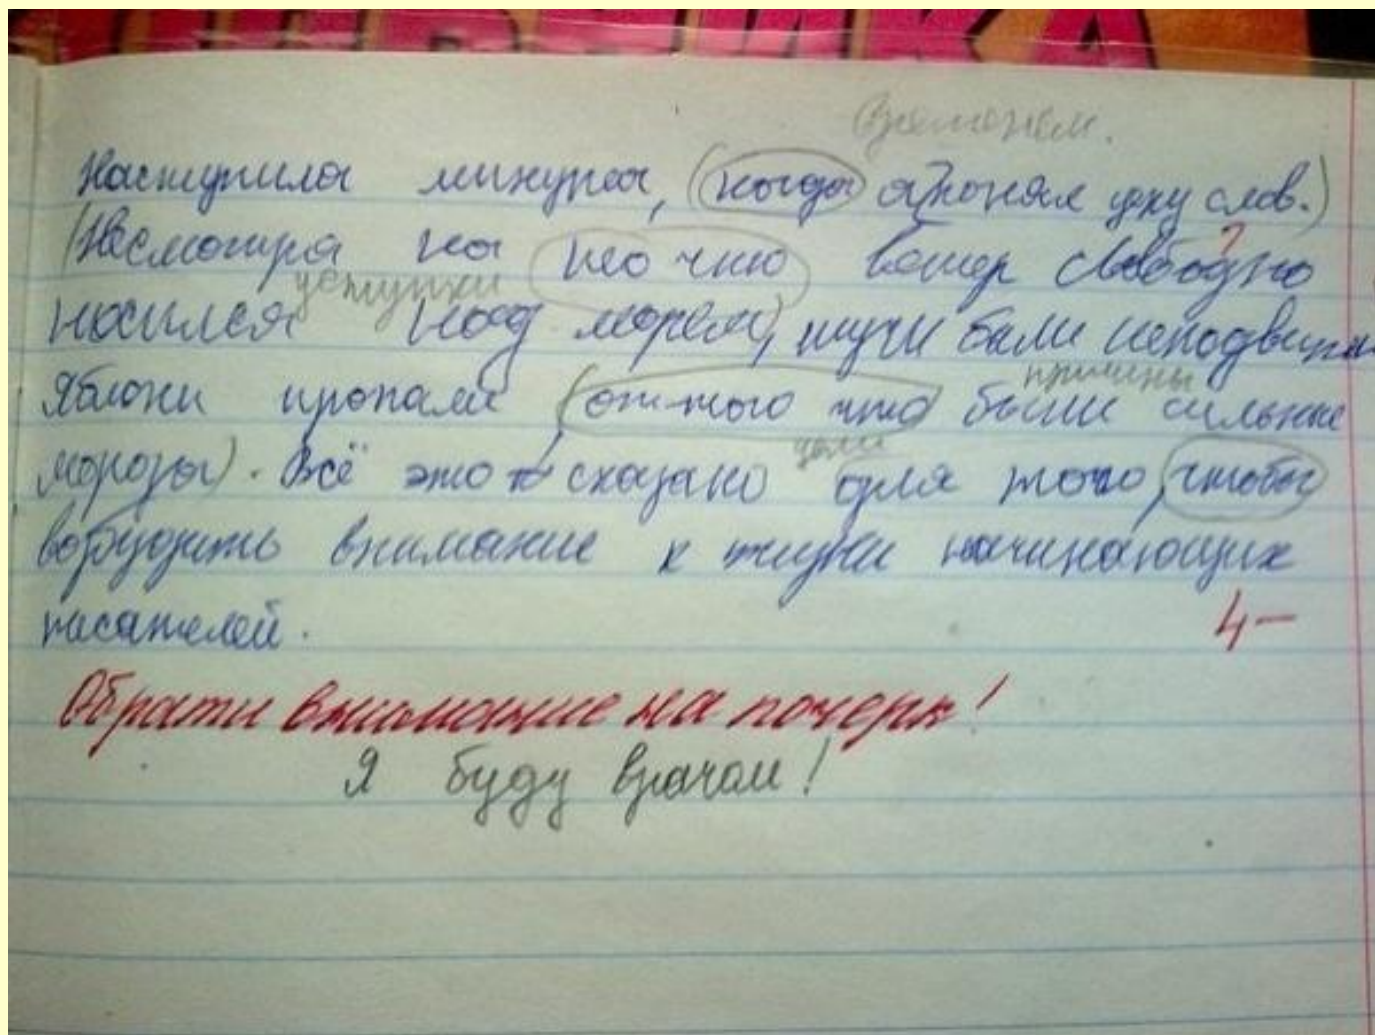 временем.
Наступила минута, (когда я понял цену слов.)
(Несмотря на то что ветер свободно
уступки
носился над морем), тучи были неподвижн
причины
Яблони пропали (оттого что были сильные
цели
морозы). Всё это сказано для того, чтобы
возбудить внимание к жизни начинающих
писателей.
4-
Обрати внимание на почерк!
Я буду врачом!